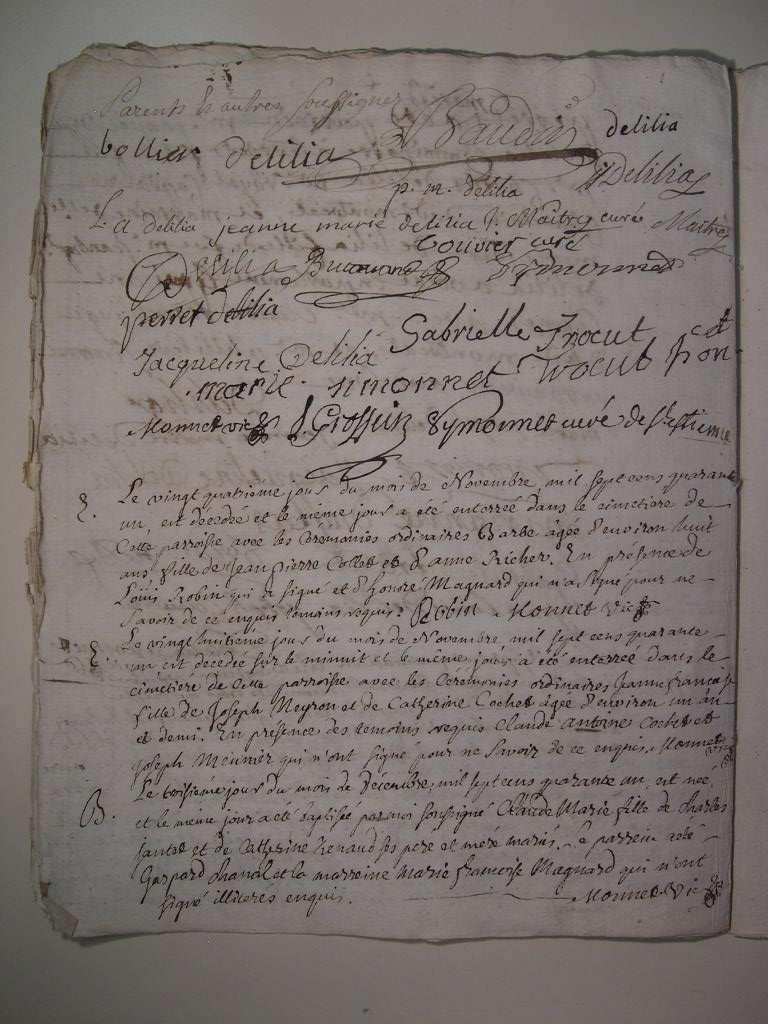 Parents & autres soussignez
Baudin delilia
bollia delilia Delilia
p. m. delilia
La delilia jeanne marie delilia Maitre curé Maitre
Bouvier curé
Delilia
perret delilia
Gabrielle Trocut
Jacqueline Delilia
marie simonnet Trocut
Monnet vic. J. Grossein Symonnet curé de Septieme
E. Le vingt quatrième jour du mois de Novembre, mil sept cens quarante
un, est decedée et le même jour a été enterrée dans le cimetiere de
Cette parroisse avec les Ceremonies ordinaires Barbe âgée d'environ huit
ans fille de Jean pierre Collet et d'anne Richer. En présence de
Louis Robin qui a signé et d'honoré Magnard qui n'a signé pour ne
Savoir de ce enquis temoins requis. Robin Monnet vic.
E. Le vingt huitieme jour du mois de Novembre mil sept cens quarante
un est decedée sur le minuit et le même jour a été enterrée dans le
cimetière de Cette parroisse avec les Ceremonies ordinaires, Jeanne françoise
fille de Joseph Meyron et de Catherine Cochet âgée d'environ un an
et demi. En présence des temoins requis Claude antoine Cochet et
Joseph Meunier qui n'ont signé pour ne Savoir de ce enquis. Monnet vic.
B. Le troisieme jour du mois de Décembre, mil sept cens quarante un, est née
et le même jour a été baptisée par moi soussigné Claude Marie fille de charles
et de Catherine Renaud ses pere et mere mariés. Le parrein a été
Gaspard chanal et la marreine Marie françoise Magnard qui n'ont
signé illiterés enquis. Monnet Vic.